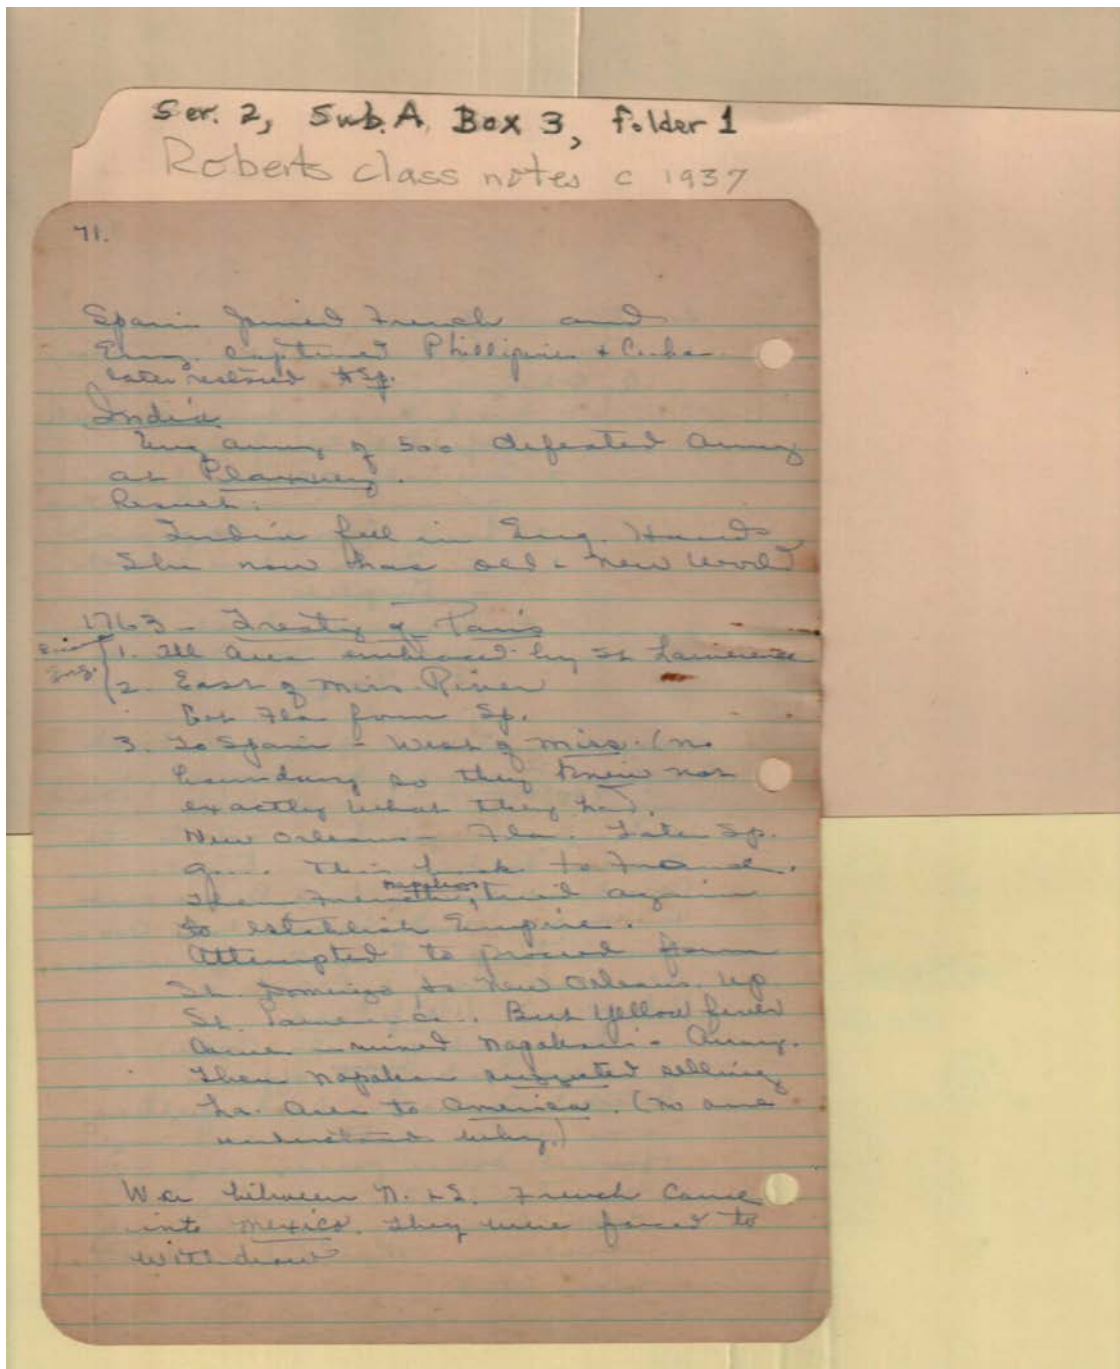 Ser. 2, Sub. A, Box 3, folder 1
Roberts class notes c 1937
71.
Spain joined French and
Eng. captured Phillipines + Cuba
later restored to Sp.
India
Eng army of 500 defeated army
at Plassey.
Result:
India fell in Eng. Hands
She now has old + New World
1763 - Treaty of Paris
1. All Area embraced by St Lawrence
Eng.
2. East of Miss River
Got Fla from Sp.
3. To Spain - West of Miss. (no
boundary so they knew not
exactly what they had.
New Orleans - Fla. Later Sp.
this back to France.
Napoleon
Then French, tried again
to establish Empire.
Attempted to proceed from
St. Domingo to New Orleans. Up
St. Lawrence. But Yellow fever
came - ruined Napoleon's Army.
Then Napoleon suggested selling
La. Area to America. (No one
understand why.)
War between N. + S. French came
into Mexico. They were forced to
withdraw